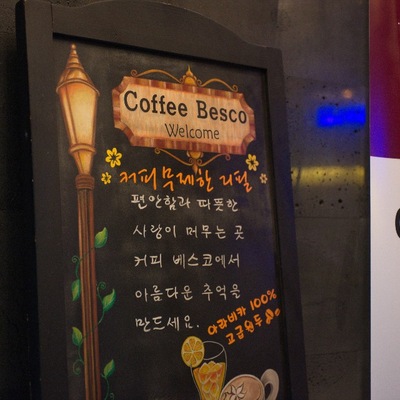 Coffee Besco
Welcome
커피무제한 리필
편안함과 따뜻한
사랑이 머무는 곳
커피 베스코에서
아름다운 추억을
만드세요.
아라비카 100%
고급원두